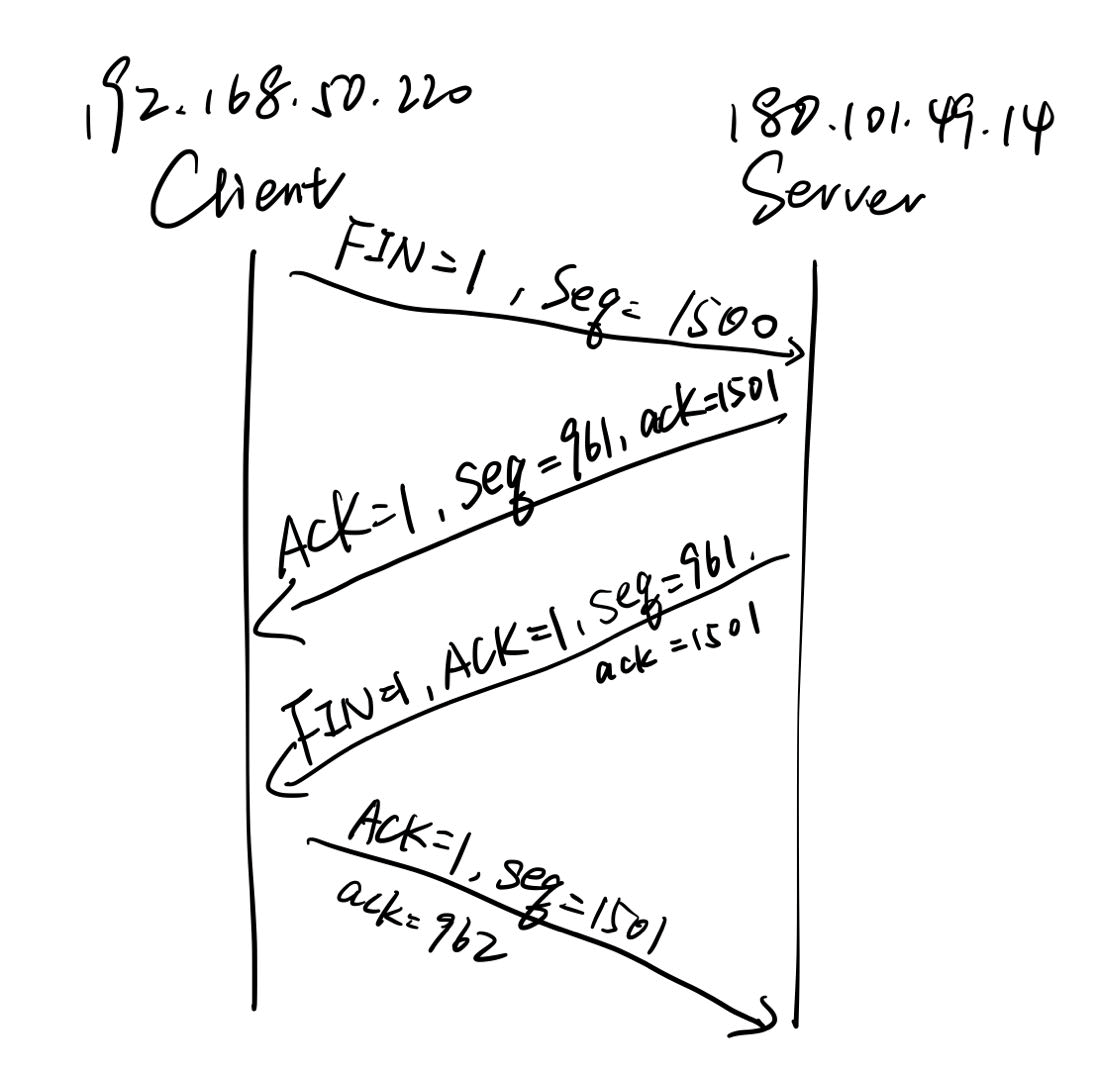 192.168.50.220
180.101.49.14
Client
Server
FIN=1, Seq=1500
ACK=1, seq=961, ack=1501
FIN=1, ACK=1, seq=961,
ack=1501
ACK=1, seq=1501
ack=962